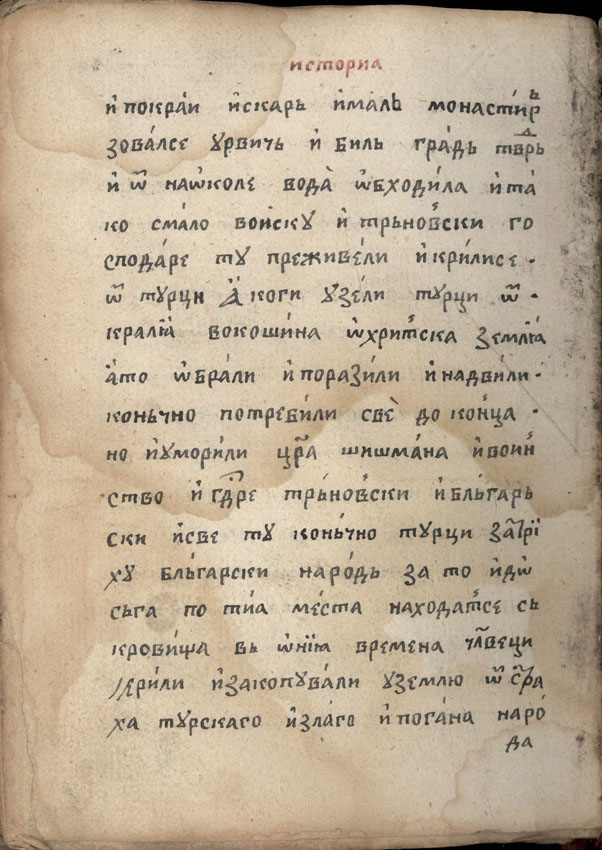 историа
и҆ покра́и и҆скарь и҆малъ монасти́рь
зова́лсе урвичь и҆ биль гра́дь твр́дь
и҆ ѿ наѡколе вода̀ ѡ҆бходи́ла и҆ та
ко сма́ло воиску и҆ трьно́вски го
спода́ре ту преживе́ли и҆ кри́лисе .
ѿ турци А҆ коги узе́ли турци ѿ .
крали́ꙗ вокошина ѡ҆хри́тска землꙗ
а҆то ѡ҆бра́ли и҆ порази́ли и҆ надви́ли .
коньчно потреби́ли свѐ до ко́нца .
но и҆умори́ли цр҃а шишма́на и҆ воин́
ство и҆ гд҃ре трьно́вски и҆ бльгарь
ски и҆све ту ко́ньчно турци за́три
ху бльга́рски наро́дь за то и҆дѡ
сьга по тиа ме́ста находатсе сь
крови́ща вь ѡ҆ниꙗ времена чл҃веци
крили и҆закопува́ли уземлю ѿ стра
ха турскаго и҆зла́го и҆ пога́на наро́
да